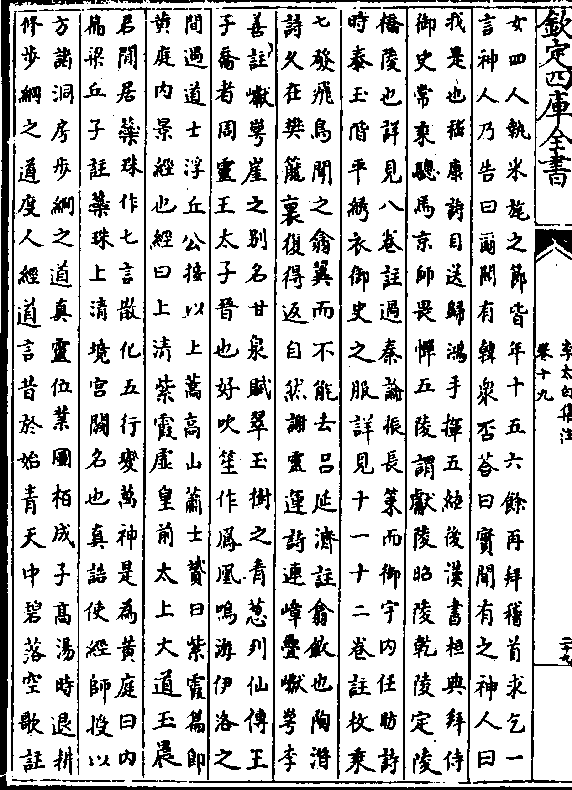 欽定四庫全書
李太白集注
卷十九
二十九
女四人執米旄之節皆年十五六餘再拜稽首求乞一
言神人乃告曰爾聞有韓衆否荅曰實聞有之神人曰
我是也嵇康詩目送歸鴻手揮五絃後漢書桓典拜侍
御史常乘驄馬京師畏憚五陵謂獻陵昭陵乾陵定陵
橋陵也詳見八卷註過秦論振長策而御宇内任昉詩
時泰玉階平綉衣御史之服詳見十一十二卷註枚乘
七發飛鳥聞之翕翼而不能去吕延濟註翕歛也陶潛
詩久在樊籠裏復得返自然謝靈運詩連嶂疊巘崿李
善註巘崿崖之别名甘泉賦翠玉樹之青葱列仙傳王
子喬者周靈王太子晉也好吹笙作鳳凰鳴游伊洛之
間遇道士浮丘公接以上嵩高山蕭士贇曰紫霞篇即
黄庭内景經也經曰上清紫霞虛皇前太上大道玉晨
君閒居蘂珠作七言散化五行變萬神是為黄庭曰内
篇梁丘子註蘂珠上清境宫闕名也真誥使經師授以
方諸洞房步綱之道真靈位業圖栢成子高湯時退耕
修步綱之道度人經道言昔於始青天中碧落空歌註